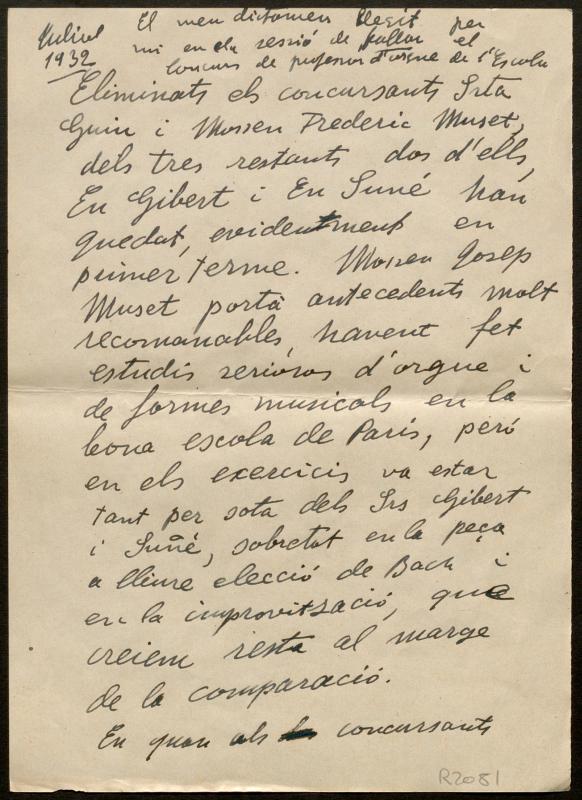 Juliol
1932
El meu dictamen llegit per
mi en la sessió de fallar el
concurs de profesor d'orgue de l'Escola
Eliminats els concursants Srta
Guiu i Mossen Frederic Muset,
dels tres restants dos d'ells,
En Gibert i En Suñé han
quedat, evidentment en
primer terme. Mossen Josep
Muset portà antecedents molt
recomanables, havent fet
estudis seriosos d'orgue i
de formes musicals en la
bona escola de París, peró
en els exercicis va estar
tant per sota dels Srs Gibert
i Suñé, sobretot en la peça
a lliure elecció de Bach i
en la improvització, que
creiem resta al marge
de la comparació.
En quan als concursants
R2081